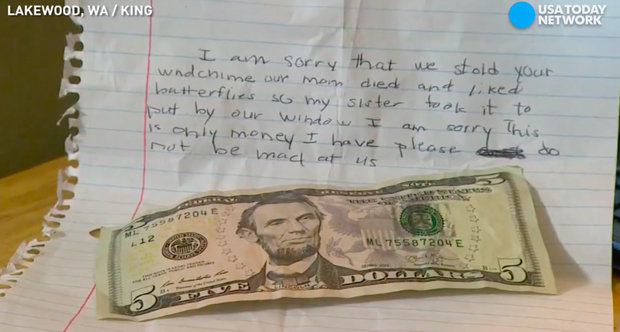 LAKEWOOD, WA / KING
USA TODAY
NETWORK
I am sorry that we stold your
windchime our mom died and liked
batterflies so my sister took it to
put by our window I am sorry This
is only money I have please do
not be mad at us
THE UNITED STATES
ML 75587204 E
L12
ML 75587204 E
5
FIVE DOLLARS
5